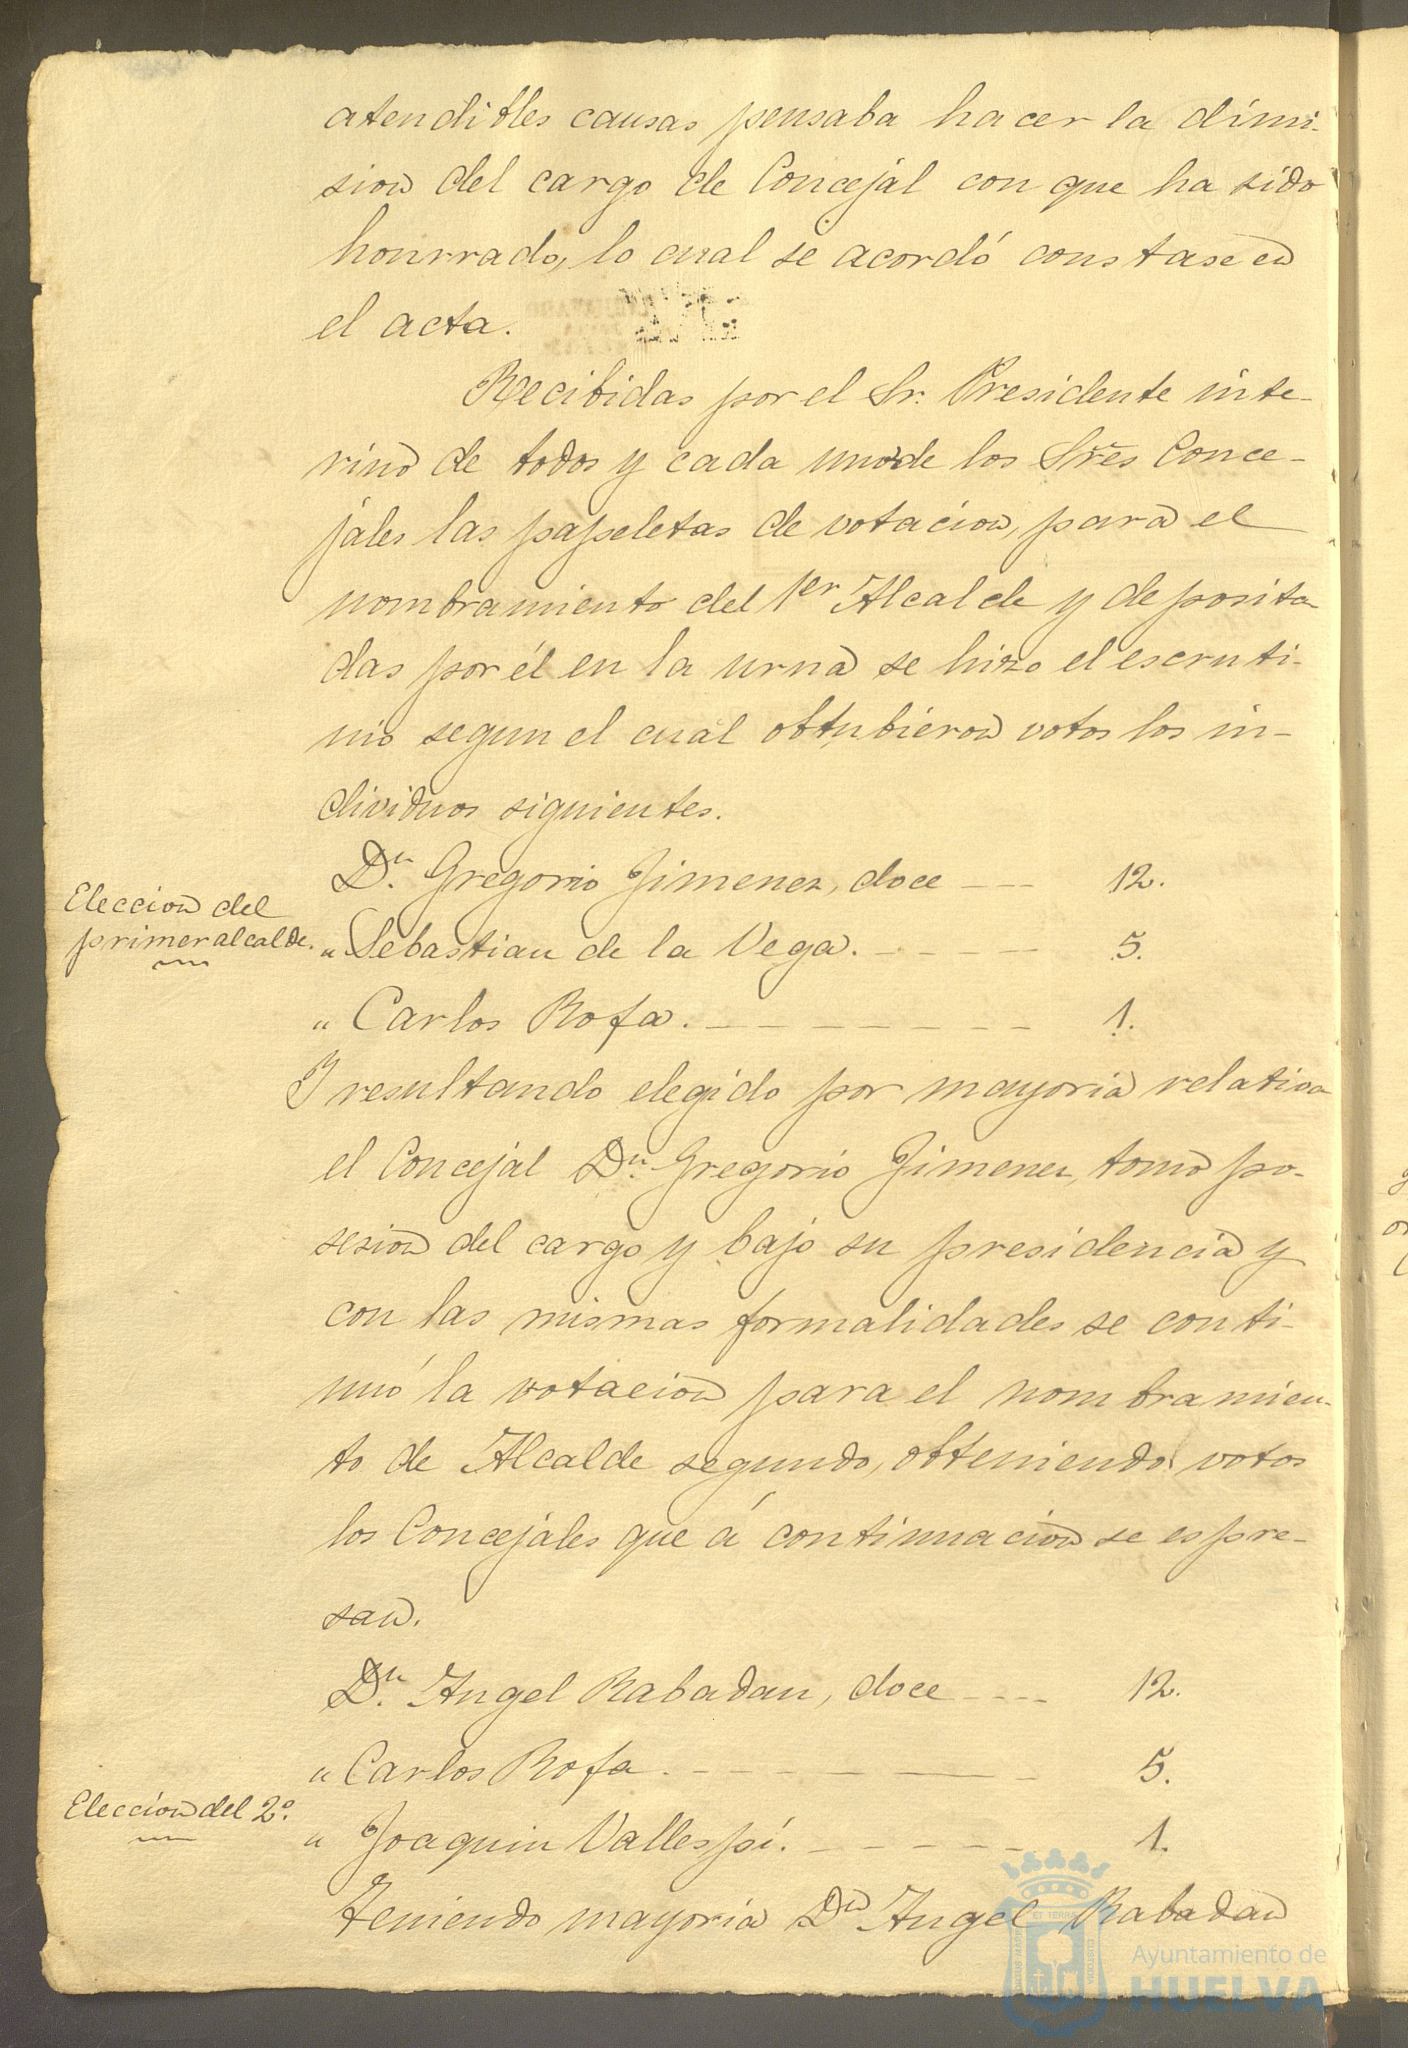 atendibles causas pensaba hacer la dimi-
sion del cargo de Concejal con que ha sido
honrrado, lo cual se acordó constase en
el acta.
Recibidas por el Sr. Presidente inte-
rino de todos y cada uno de los Sres Conce-
jales las papeletas de votacion, para el
nombramiento del 1er Alcalde y deposita
das por él en la urna se hizo el escruti-
nio segun el cual obtubieron votos los in-
dividuos siguientes.
Dn. Gregorio Jimenez, doce --- 12.
Eleccion del
primer alcalde.
" Sebastian de la Vega. ---- 5.
" Carlos Rofa. -------- 1.
Y resultando elegido por mayoria relativa
el Concejal Dn. Gregorio Jimenez, tomó po-
sesion del cargo y bajo su presidencia y
con las mismas formalidades se conti-
nuó la votacion para el nombramien-
to de Alcalde segundo, obteniendo votos
los Concejales que á continuacion se espre-
san.
Dn. Angel Rabadan, doce ---- 12.
" Carlos Rofa. -------- 5.
Eleccion del 2º.
" Joaquin Vallespí. ----- 1.
Teniendo mayoria Dn Angel Rabadan
Ayuntamiento de
HUELVA